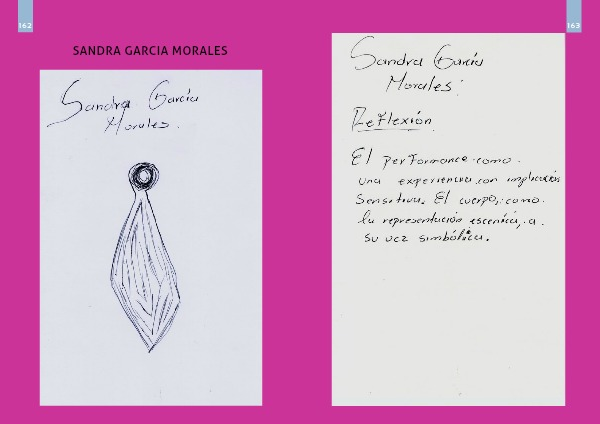 162
SANDRA GARCIA MORALES
Sandra García
Morales.
163
Sandra García
Morales.
Reflexión
El performance como
una experiencia con implicación
sensitiva. El cuerpo, como
la representación escenica, a
su vez simbólica.